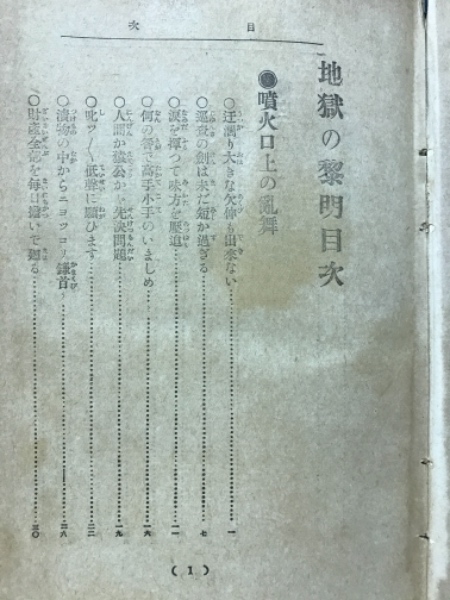 目次
地獄の黎明目次
●噴火口上の亂舞
○迂濶り大きな欠伸も出來ない 一
○巡査の劍は未だ短か過ぎる 七
○涙を揮つて味方を壓迫 一一
○何の咎で高手小手のいましめ 一六
○人間か猿公か、先決問題 一九
○叱ツ〱低聲に願ひます 二二
○漬物の中からニヨツコリ鎌首 二八
○財産全部を毎日擔いで廻る 三〇
(1)